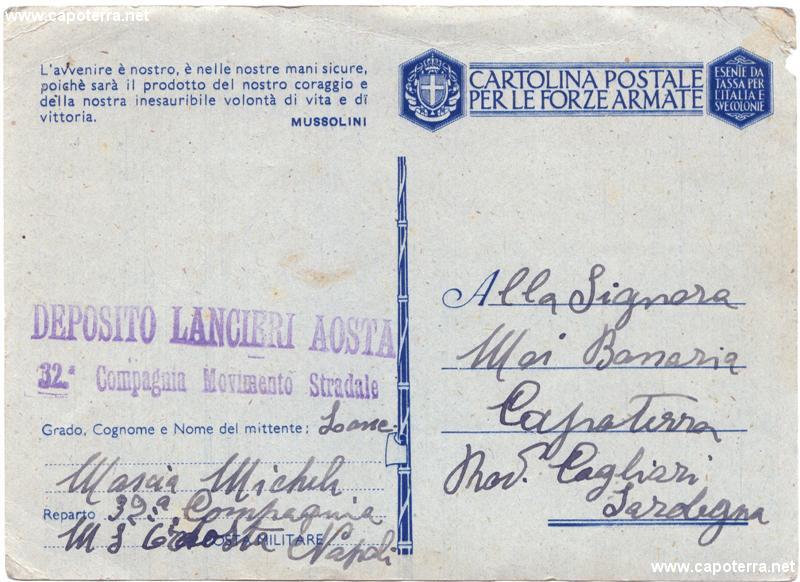 www.capoterra.net
www.capoterra.net
L'avvenire è nostro, è nelle nostre mani sicure,
poichè sarà il prodotto del nostro coraggio e
della nostra inesauribile volontà di vita e di
vittoria.
MUSSOLINI
CARTOLINA POSTALE
PER LE FORZE ARMATE
ESENTE DA
TASSA PER
L'ITALIA E
SVE COLONIE
DEPOSITO LANCIERI AOSTA
32.ª Compagnia Movimento Stradale
Grado, Cognome e Nome del mittente:
Mascia Michele
Reparto 32.ª Compagnia
POSTA MILITARE Napoli
Alla Signora
Moi Bonaria
Capoterra
Prov. Cagliari
Sardegna
www.capoterra.net
www.capoterra.net